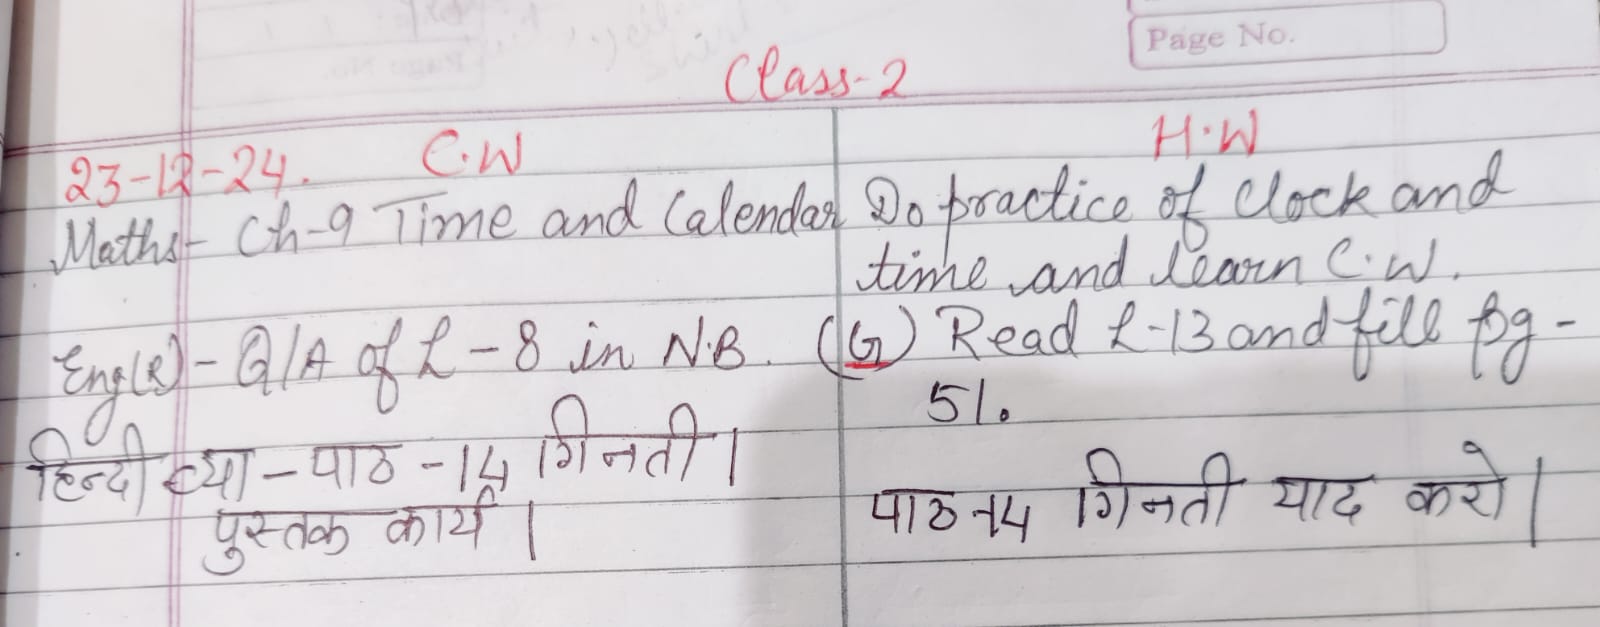 Page No.
Class-2
23-12-24. C.W H.W
Maths- Ch-9 Time and Calendar Do practice of Clock and
time and learn C.W.
Eng(R)- Q/A of L-8 in N.B. (G) Read L-13 and fill pg-
51.
हिन्दी व्या-पाठ-14 गिनती।
पुस्तक कार्य। पाठ-14 गिनती याद करो।